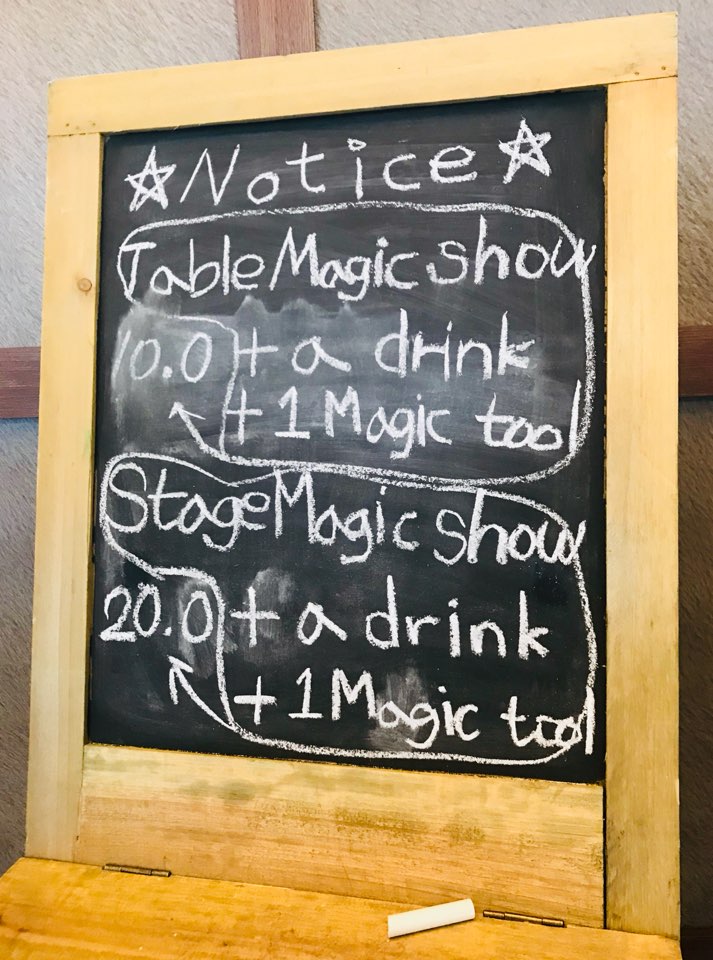 ☆Notice☆
Table Magic show
10.0 + a drink
+ 1 Magic tool
Stage Magic show
20.0 + a drink
+ 1 Magic tool